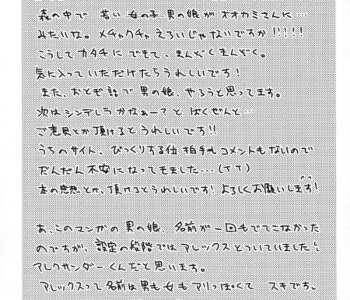 森の中で 若い 女の子 男の娘が オオカミさんに…
みたいな。メチャクチャ えろいじゃないですか!!!!
こうしてカタチに できて、まんぞくまんぞく。
気に入っていただけたらうれしいです!
また、おとぎ話で 男の娘、やろうと思ってます。
次はシンデレラかなぁー? と ばくぜんと…
ご意見とか頂けると うれしいです!!
うちのサイト、びっくりする位 拍手もコメントもないので
だんだん不安になってきました…(TT)
本の感想とか、頂けるとうれしいです! よろしくお願いします!
あ、このマンガの男の娘、名前が一回もでてこなかった
のですが、設定の段階ではアレックスとついていました!
アレクサンダーくんだと思います。
アレックスって名前は男も女もアリっぽくて スキです。